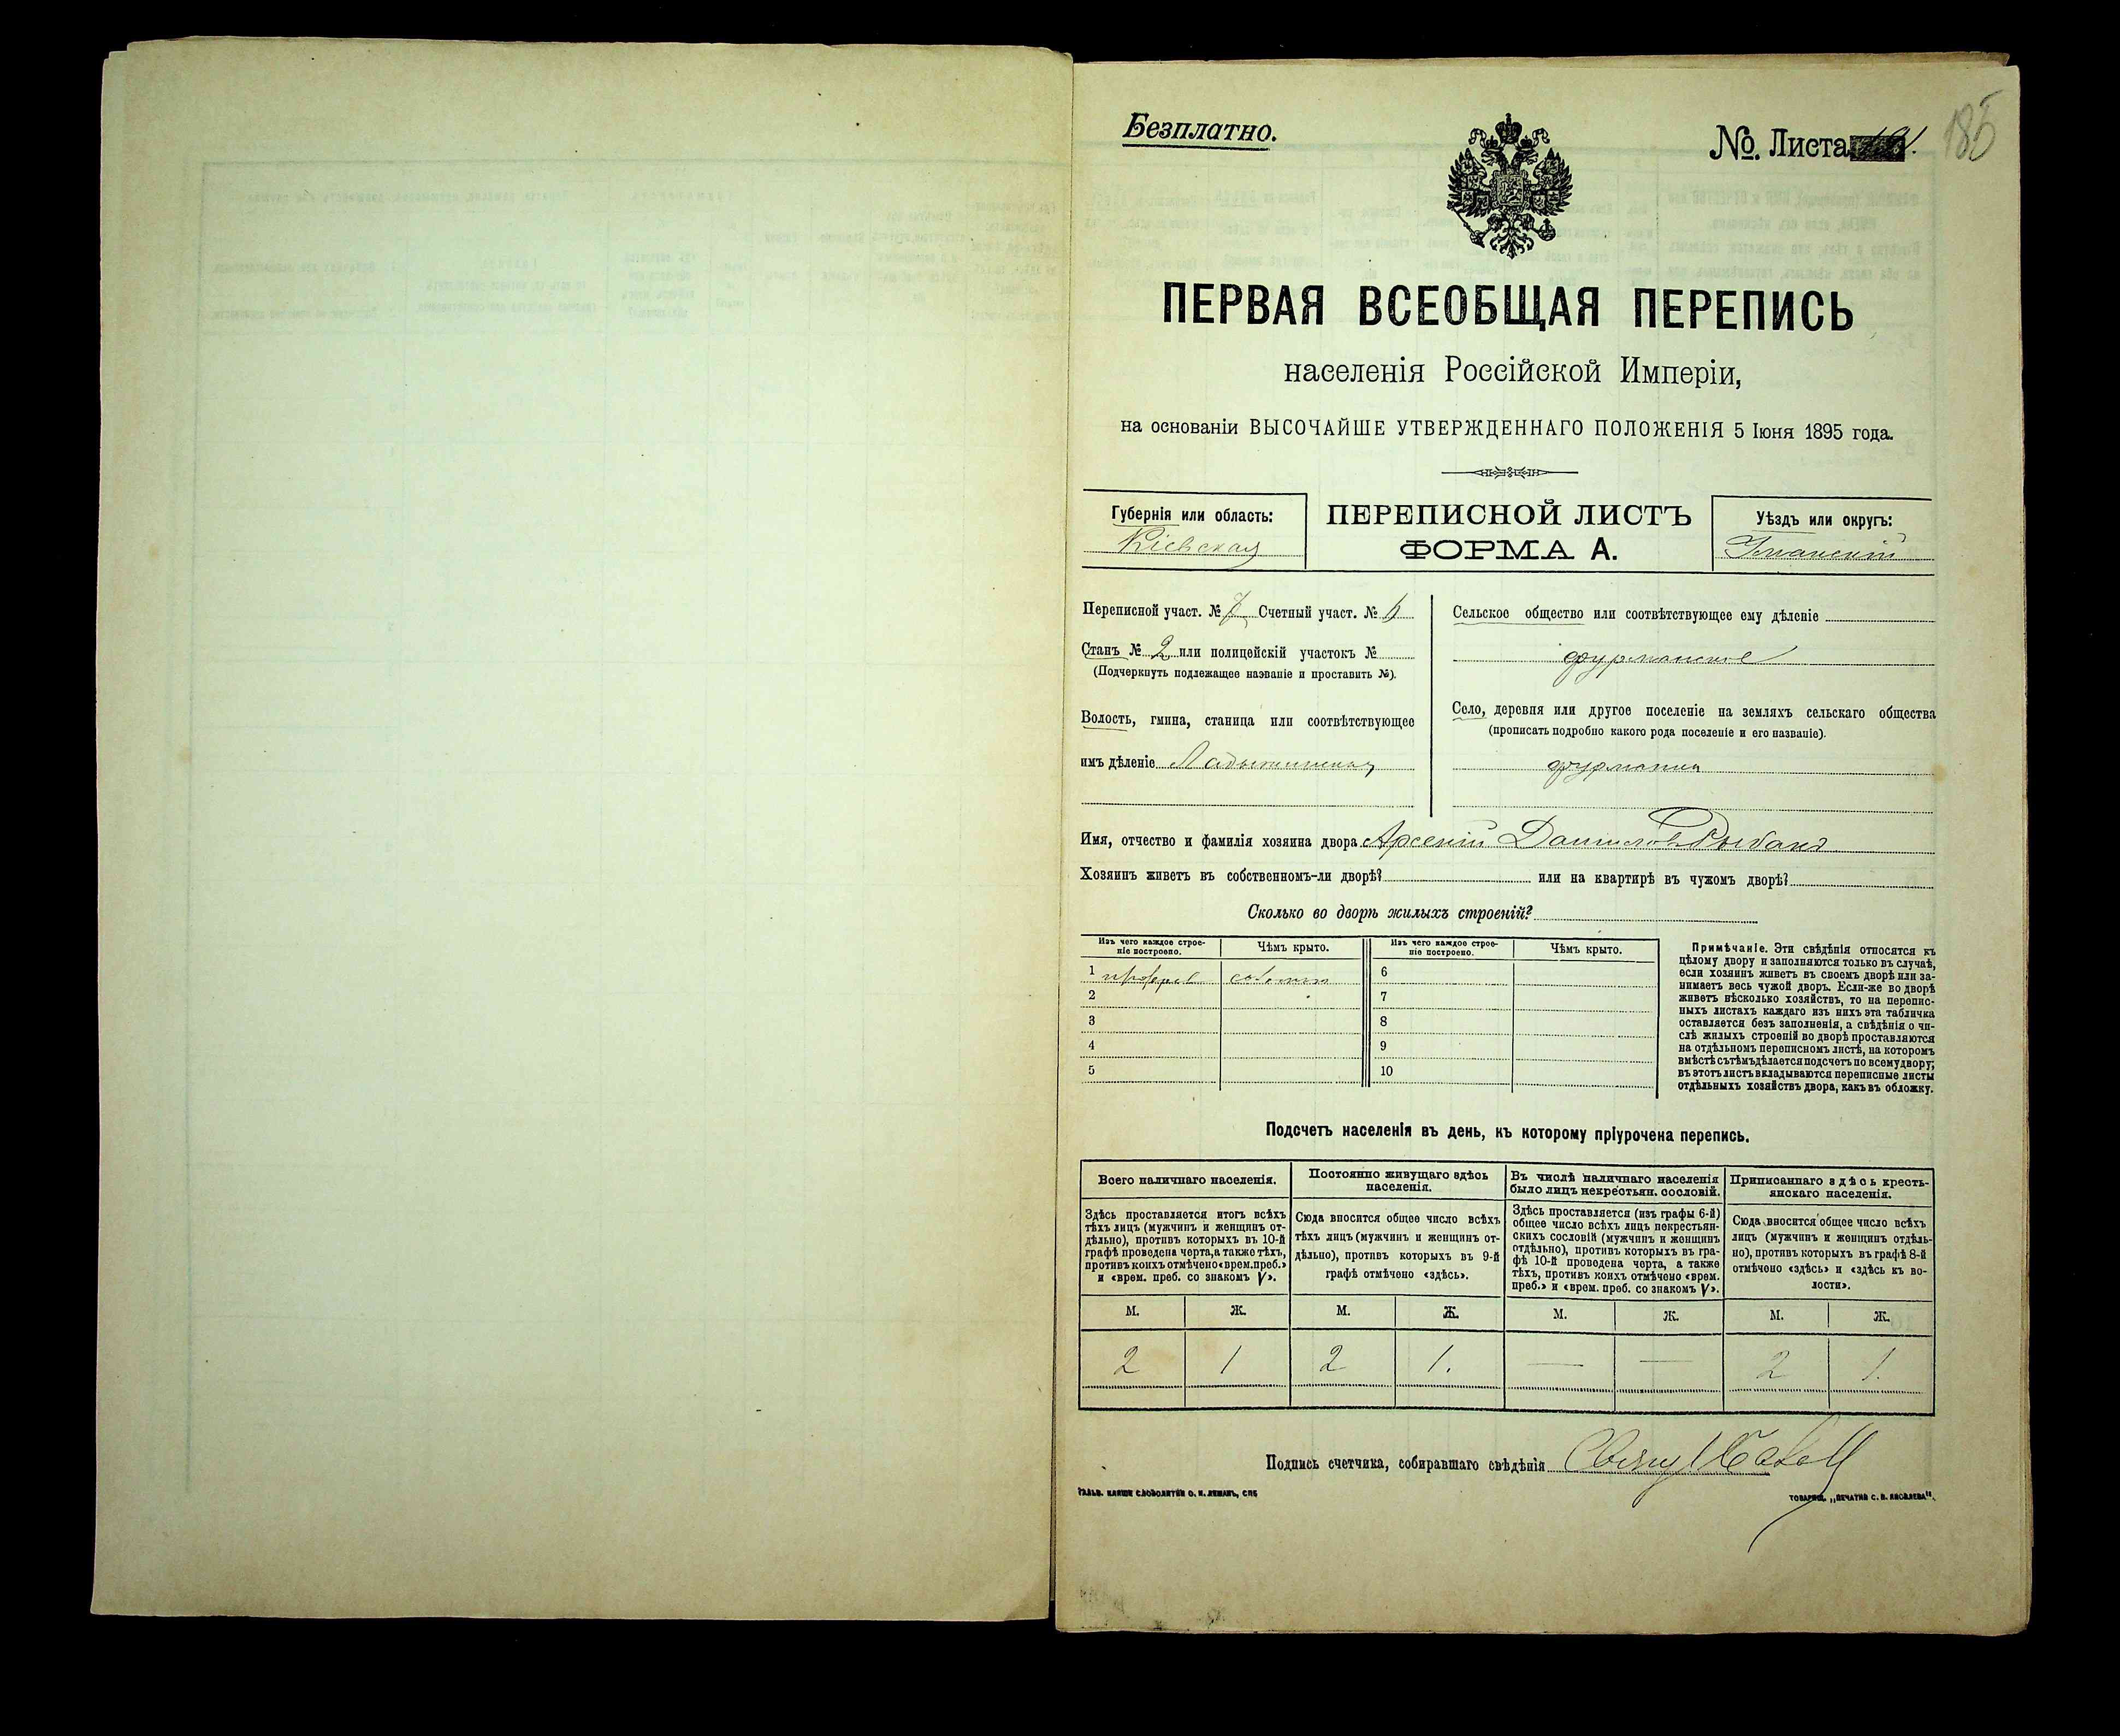 Безплатно.
№. Листа
185
ПЕРВАЯ ВСЕОБЩАЯ ПЕРЕПИСЬ
населенія Россійской Имперіи,
на основаніи ВЫСОЧАЙШЕ УТВЕРЖДЕННАГО ПОЛОЖЕНІЯ 5 Іюня 1895 года.
Губернія или область:
Кіевская
ПЕРЕПИСНОЙ ЛИСТЪ
ФОРМА А.
Уѣздъ или округъ:
Уманскій
Переписной участ. № 7 Счетный участ. №
Станъ № 2 или полицейскій участокъ №
(Подчеркнуть подлежащее названіе и проставить №).
Волость, гмина, станица или соотвѣтствующее
имъ дѣленіе Ладыжинская
Сельское общество или соотвѣтствующее ему дѣленіе
фурманское
Село, деревня или другое поселеніе на земляхъ сельскаго общества
(прописать подробно какого рода поселеніе и его названіе).
фурманка
Имя, отчество и фамилія хозяина двора Арсеній Даниловъ Рыбакъ
Хозяинъ живетъ въ собственномъ-ли дворѣ? или на квартирѣ въ чужомъ дворѣ?
Сколько во дворѣ жилыхъ строеній?
Изъ чего каждое строе-
ніе построено.
Чѣмъ крыто.
Изъ чего каждое строе-
ніе построено.
Чѣмъ крыто.
1
2
3
4
5
6
7
8
9
10
Примѣчаніе. Эти свѣдѣнія относятся къ
цѣлому двору и заполняются только въ случаѣ,
если хозяинъ живетъ въ своемъ дворѣ или за-
нимаетъ весь чужой дворъ. Если-же во дворѣ
живетъ нѣсколько хозяйствъ, то на перепис-
ныхъ листахъ каждаго изъ нихъ эта табличка
оставляется безъ заполненія, а свѣдѣнія о чи-
слѣ жилыхъ строеній во дворѣ проставляются
на отдѣльномъ переписномъ листѣ, на которомъ
вмѣстѣ съ тѣмъ дѣлается подсчетъ по всему двору;
въ этотъ листъ вкладываются переписные листы
отдѣльныхъ хозяйствъ двора, какъ въ обложку.
Подсчетъ населенія въ день, къ которому пріурочена перепись.
Всего наличнаго населенія.
Здѣсь проставляется итогъ всѣхъ
тѣхъ лицъ (мужчинъ и женщинъ от-
дѣльно), противъ которыхъ въ 10-й
графѣ проведена черта, а также тѣхъ,
противъ коихъ отмѣчено «врем. преб.»
и «врем. преб. со знакомъ V».
Постоянно живущаго здѣсь
населенія.
Сюда вносится общее число всѣхъ
тѣхъ лицъ (мужчинъ и женщинъ от-
дѣльно), противъ которыхъ въ 9-й
графѣ отмѣчено «здѣсь».
Въ числѣ наличнаго населенія
было лицъ некрестьян. сословій.
Здѣсь проставляется (изъ графы 6-й)
общее число всѣхъ лицъ некрестьян-
скихъ сословій (мужчинъ и женщинъ
отдѣльно), противъ которыхъ въ гра-
фѣ 10-й проведена черта, а также
тѣхъ, противъ коихъ отмѣчено «врем.
преб.» и «врем. преб. со знакомъ V».
Приписаннаго здѣсь кресть-
янскаго населенія.
Сюда вносится общее число всѣхъ
лицъ (мужчинъ и женщинъ отдѣль-
но), противъ которыхъ въ графѣ 8-й
отмѣчено «здѣсь» и «здѣсь къ во-
лости».
М. Ж. М. Ж. М. Ж. М. Ж.
2 1 2 1. — — 2 1.
Подпись счетчика, собиравшаго свѣдѣнія
ГАЛЬВ. КЛИШЕ СЛОВОЛИТНИ О. И. ЛЕМАНЪ, СПБ
ТОВАРИЩ. „ПЕЧАТНЯ С. П. ЯКОВЛЕВА".